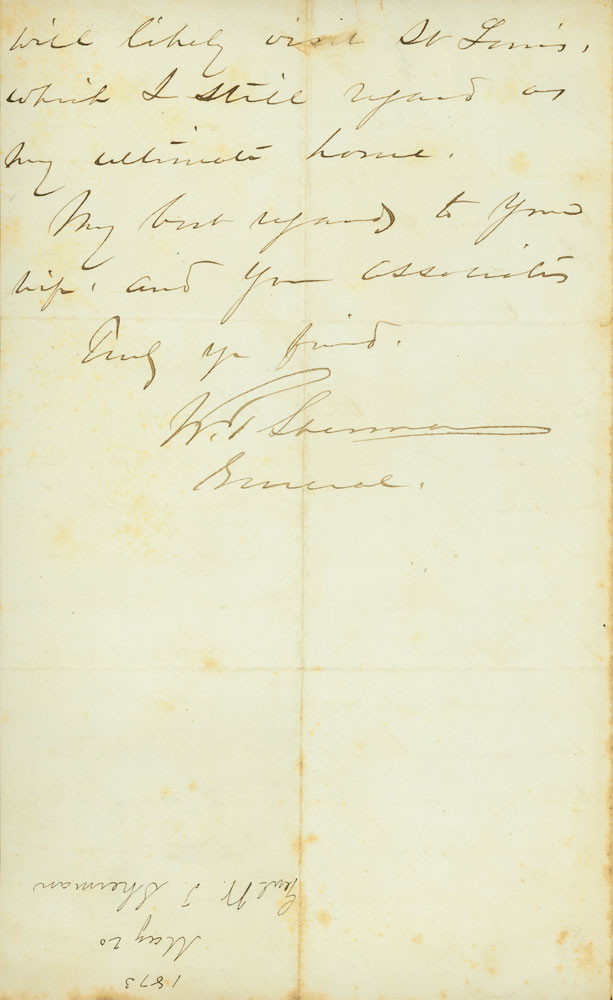 will likely visit St Louis,
which I still regard as
my ultimate home.
My best regards to your
wife, and your associates
Truly yr friend.
W. T. Sherman
General.
Genl W. T. Sherman
May 20
1873